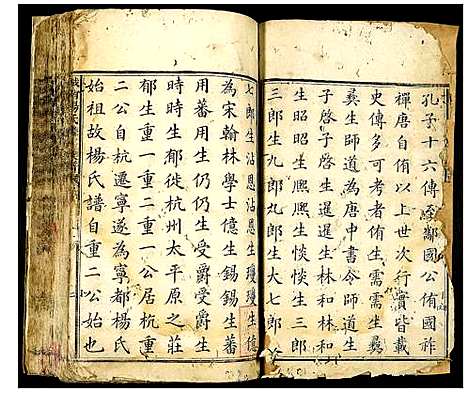 孔子十六傳至鄰國公侑國祚
禪唐自侑以上世次行實皆載
史傳多可考者侑生需需生彝
彝生師道為唐中書令師道生
子啓子啓生暹暹生林和林和
生昭昭生熈熈生惔惔生三郎
三郎生九郎九郎生大七郎
七郎生沾恩沾恩生瓊瓊生億
為宋翰林學士億生錫錫生蕃
用蕃用生仍仍生受爵受爵生
時時生郁徙杭州太平原之莊
郁生重一重二重一公居杭重
二公自杭遷寧遂為寧都楊氏
始祖故楊氏譜自重二公始也